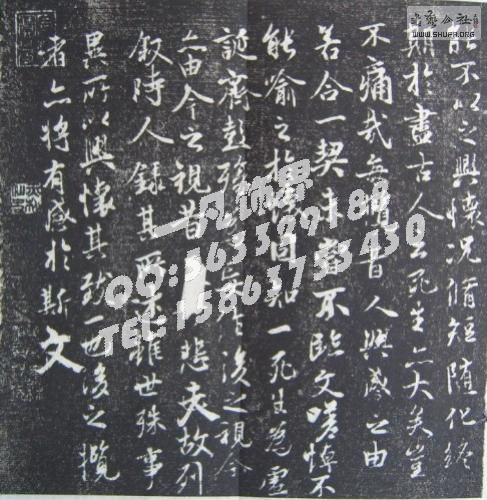 能不以之興懷況脩短随化終
期於盡古人云死生亦大矣豈
不痛哉每攬昔人興感之由
若合一契未嘗不臨文嗟悼不
能喻之於懷固知一死生為虛
誕齊彭殤為妄作後之視今
亦由今之視昔悲夫故列
叙時人錄其所述雖世殊事
異所以興懷其致一也後之攬
者亦將有感於斯文
一凡饰界
TEL:15863753430
书艺公社
WWW.SHUFA.ORG